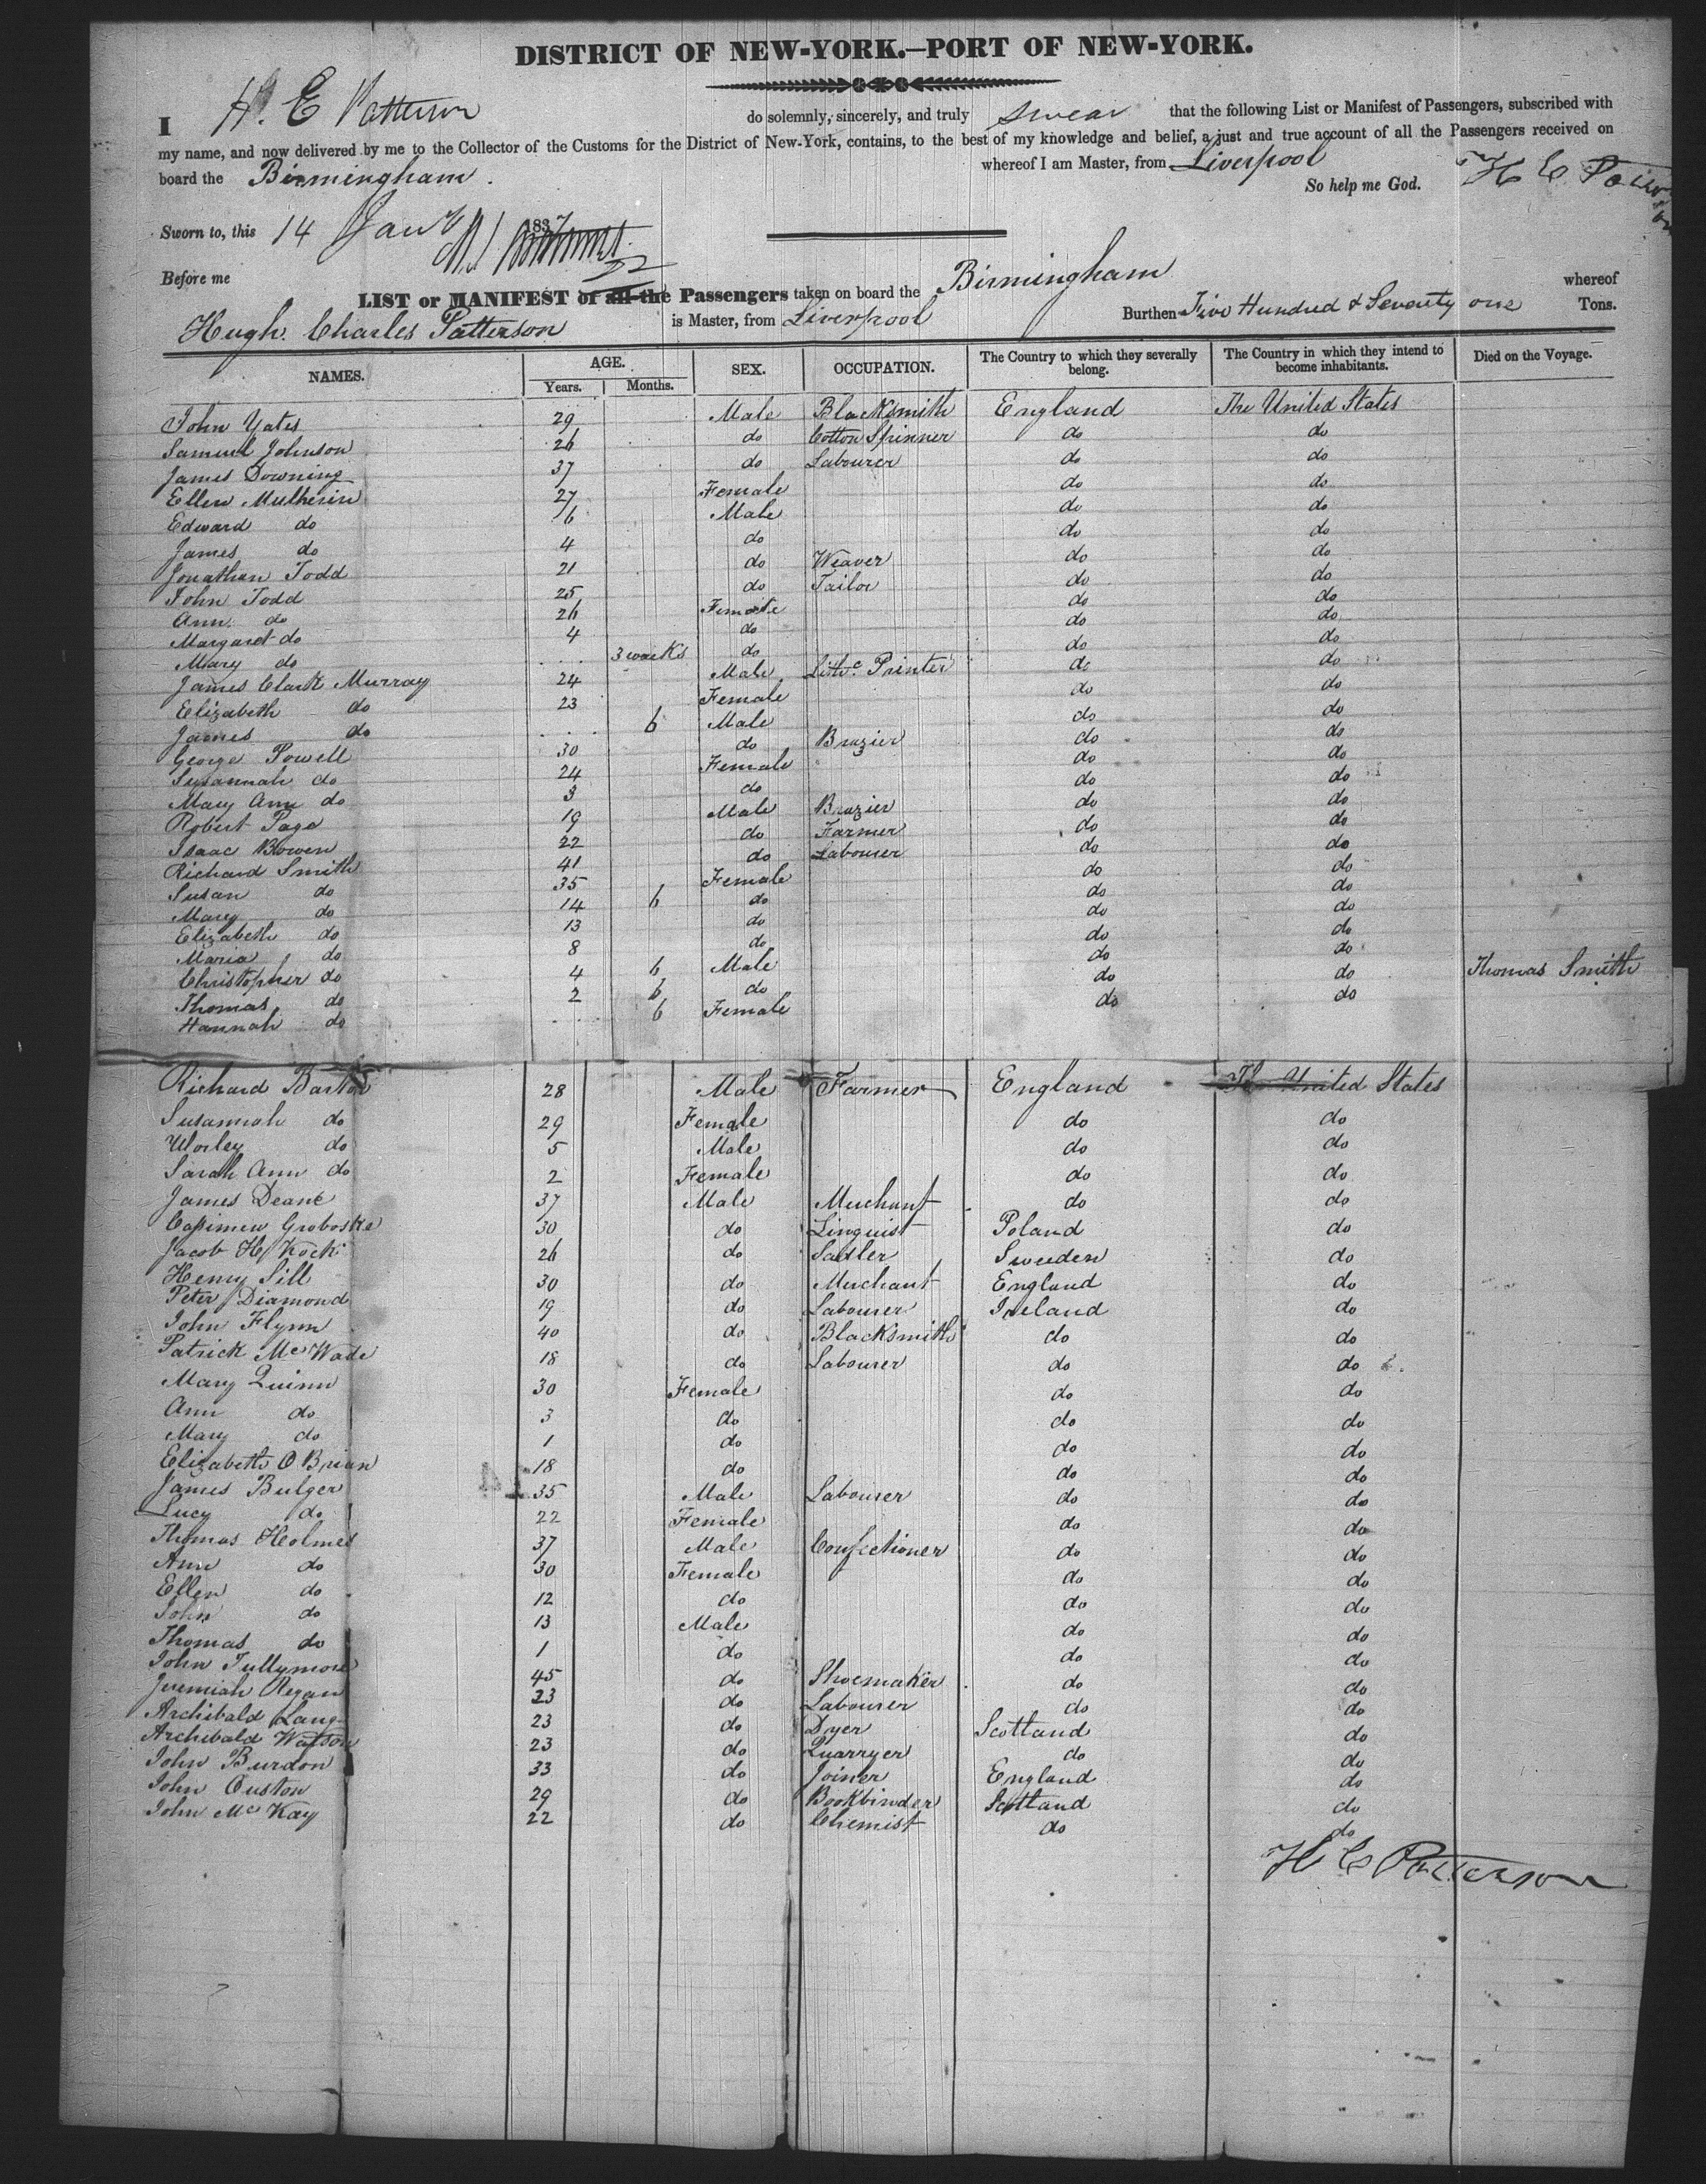 DISTRICT OF NEW-YORK.—PORT OF NEW-YORK.
I H. E Patterson do solemnly, sincerely, and truly swear that the following List or Manifest of Passengers, subscribed with
my name, and now delivered by me to the Collector of the Customs for the District of New-York, contains, to the best of my knowledge and belief, a just and true account of all the Passengers received on
board the Birmingham. whereof I am Master, from Liverpool
So help me God. H C Patterson
Sworn to, this 14 Jany 1837
Before me
LIST or MANIFEST of all the Passengers taken on board the Birmingham whereof
Hugh Charles Patterson is Master, from Liverpool Burthen Five Hundred & Seventy one Tons.
NAMES. AGE. Years. Months. SEX. OCCUPATION. The Country to which they severally belong. The Country in which they intend to become inhabitants. Died on the Voyage.
John Yates 29 Male Blacksmith England The United States
Samuel Johnson 26 do Cotton Spinner do do
James Downing 37 do Labourer do do
Ellen Mulherin 27 Female do do
Edward do 6 Male do do
James do 4 do do do
Jonathan Todd 21 do Weaver do do
John Todd 25 do Tailor do do
Ann do 26 Female do do
Margaret do 4 do do do
Mary do 3 weeks do do do
James Clark Murray 24 Male Lithc. Printer do do
Elizabeth do 23 Female do do
James do 6 Male do do
George Powell 30 do Brazier do do
Susannah do 24 Female do do
Mary Ann do 3 do do do
Robert Page 19 Male Brazier do do
Isaac Bowen 22 do Farmer do do
Richard Smith 41 do Labourer do do
Susan do 35 Female do do
Mary do 14 6 do do do
Elizabeth do 13 do do do
Maria do 8 do do do
Christopher do 4 6 Male do do
Thomas do 2 6 do do do Thomas Smith
Hannah do 6 Female do do
Richard Barton 28 Male Farmer England The United States
Susannah do 29 Female do do
Worley do 5 Male do do
Sarah Ann do 2 Female do do
James Deane 37 Male Merchant do do
Casimew Groboske 30 do Linguist Poland do
Jacob H Kock 26 do Sadler Sweeden do
Henry Sill 30 do Merchant England do
Peter Diamond 19 do Labourer Ireland do
John Flynn 40 do Blacksmith do do
Patrick Mc Wade 18 do Labourer do do
Mary Quinn 30 Female do do
Ann do 3 do do do
Mary do 1 do do do
Elizabeth O Brian 18 do do do
James Bulger 35 Male Labourer do do
Lucy do 22 Female do do
Thomas Holmes 37 Male Confectioner do do
Ann do 30 Female do do
Ellen do 12 do do do
John do 13 Male do do
Thomas do 1 do do do
John Tullymore 45 do Shoemaker do do
Jeremiah Regan 23 do Labourer do do
Archibald Lang 23 do Dyer Scotland do
Archibald Watson 23 do Quarryer do do
John Burdon 33 do Joiner England do
John Ouston 29 do Bookbinder Scotland do
John Mc Kay 22 do Chemist do do
H C Patterson